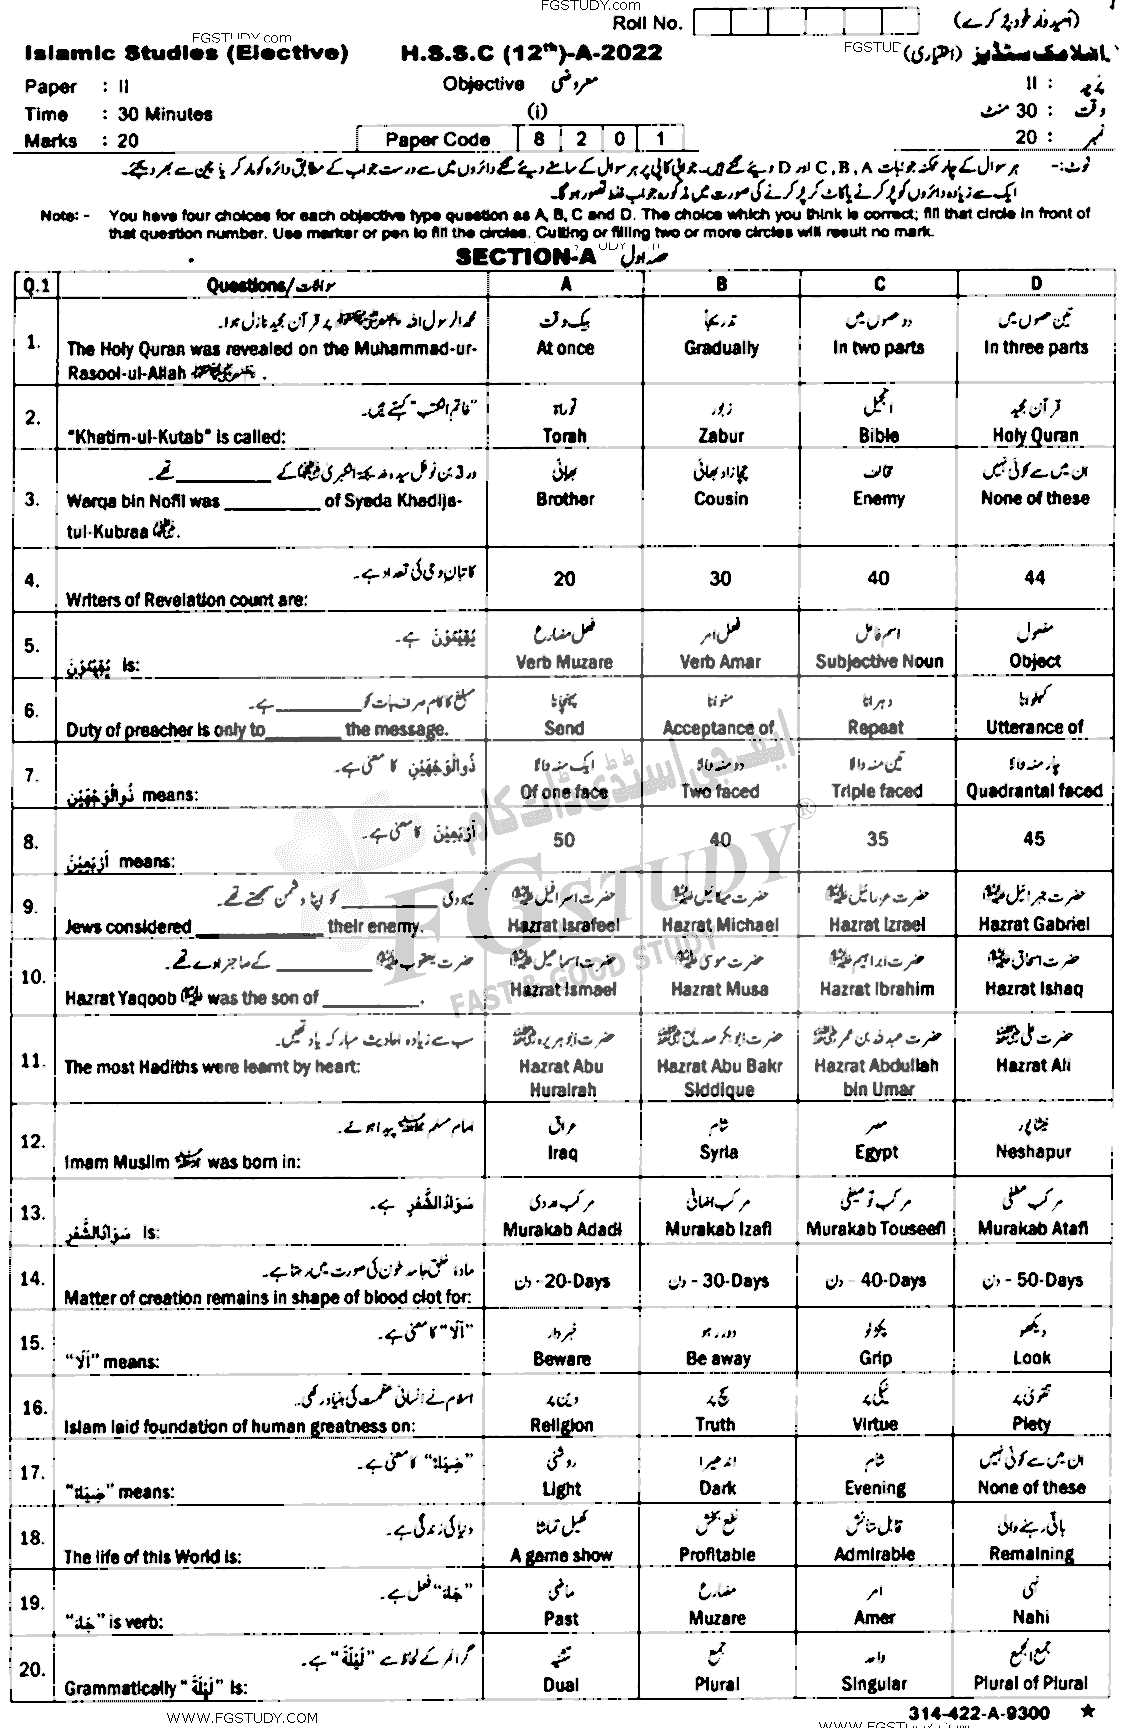 FGSTUDY.com
Roll No. (امیدوار خود پُر کرے)
FGSTUDY.com
Islamic Studies (Elective) H.S.S.C (12th)-A-2022 اسلامک سٹڈیز (اختیاری)
Paper : II Objective معروضی پرچہ : II
Time : 30 Minutes (i) وقت : 30 منٹ
Marks : 20 Paper Code 8 2 0 1 نمبر : 20
نوٹ:- ہر سوال کے چار ممکنہ جوابات C, B, A اور D دیئے گئے ہیں۔ جوابی کاپی پر ہر سوال کے سامنے دیئے گئے دائروں میں سے درست جواب کے مطابق دائرہ کو مارکر یا پین سے بھر دیجئے۔
ایک سے زیادہ دائروں کو پُر کرنے یا کاٹ کر پُر کرنے کی صورت میں مذکورہ جواب غلط تصور ہو گا۔
Note: - You have four choices for each objective type question as A, B, C and D. The choice which you think is correct; fill that circle in front of
that question number. Use marker or pen to fill the circles. Cutting or filling two or more circles will result no mark.
SECTION-A حصہ اول
Q.1 Questions/سوالات A B C D
1. محمد الرسول اللہ پر قرآن مجید نازل ہوا۔ یک وقت تدریجاً دو حصوں میں تین حصوں میں
The Holy Quran was revealed on the Muhammad-ur- At once Gradually In two parts In three parts
Rasool-ul-Allah .
2. "خاتم الکتب" کہتے ہیں۔ توراۃ زبور انجیل قرآن مجید
"Khatim-ul-Kutab" is called: Torah Zabur Bible Holy Quran
3. ورقہ بن نوفل سیدہ خدیجۃ الکبریٰ کے ________ تھے۔ بھائی چچا زاد بھائی مخالف ان میں سے کوئی نہیں
Warqa bin Nofil was ________ of Syeda Khadija- Brother Cousin Enemy None of these
tul-Kubraa .
4. کاتبان وحی کی تعداد ہے۔ 20 30 40 44
Writers of Revelation count are:
5. يُقِيْمُوْنَ ہے۔ فعل مضارع فعل امر اسم فاعل مفعول
يُقِيْمُوْنَ is: Verb Muzare Verb Amar Subjective Noun Object
6. مبلغ کا کام صرف بات کو ________ ہے۔ پہنچانا منوانا دہرانا کہلوانا
Duty of preacher is only to ________ the message. Send Acceptance of Repeat Utterance of
7. ذُوالْوَجْهَيْنِ کا معنی ہے۔ ایک منہ والا دو منہ والا تین منہ والا چار منہ والا
ذُوالْوَجْهَيْنِ means: Of one face Two faced Triple faced Quadrantal faced
8. اَرْبَعِيْنَ کا معنی ہے۔ 50 40 35 45
اَرْبَعِيْنَ means:
9. یہودی ________ کو اپنا دشمن سمجھتے تھے۔ حضرت اسرافیل حضرت میکائیل حضرت عزرائیل حضرت جبرائیل
Jews considered ________ their enemy. Hazrat Israfeel Hazrat Michael Hazrat Izrael Hazrat Gabriel
10. حضرت یعقوب ________ کے صاحبزادے تھے۔ حضرت اسماعیل حضرت موسیٰ حضرت ابراہیم حضرت اسحاق
Hazrat Yaqoob was the son of ________. Hazrat Ismael Hazrat Musa Hazrat Ibrahim Hazrat Ishaq
11. سب سے زیادہ احادیث مبارکہ یاد تھیں۔ حضرت ابو ہریرہ حضرت ابوبکر صدیق حضرت عبداللہ بن عمر حضرت علی
The most Hadiths were learnt by heart: Hazrat Abu Hurairah Hazrat Abu Bakr Siddique Hazrat Abdullah bin Umar Hazrat Ali
12. امام مسلم پیدا ہوئے۔ عراق شام مصر نیشاپور
Imam Muslim was born in: Iraq Syria Egypt Neshapur
13. سَوَادُالشَّعْرِ ہے۔ مرکب عددی مرکب اضافی مرکب توصیفی مرکب عطفی
سَوَادُالشَّعْرِ is: Murakab Adadi Murakab Izafi Murakab Touseefi Murakab Atafi
14. مادہ خلق جامد خون کی صورت میں رہتا ہے۔ 20-Days - دن 30-Days - دن 40-Days - دن 50-Days - دن
Matter of creation remains in shape of blood clot for:
15. "اَلَا" کا معنی ہے۔ خبردار دور رہو پکڑو دیکھو
"اَلَا" means: Beware Be away Grip Look
16. اسلام نے انسانی عظمت کی بنیاد رکھی۔ دین پر سچ پر نیکی پر تقویٰ پر
Islam laid foundation of human greatness on: Religion Truth Virtue Piety
17. "ضِيَاءٌ" کا معنی ہے۔ روشنی اندھیرا شام ان میں سے کوئی نہیں
"ضِيَاءٌ" means: Light Dark Evening None of these
18. دنیا کی زندگی ہے۔ کھیل تماشا نفع بخش قابل ستائش باقی رہنے والی
The life of this World is: A game show Profitable Admirable Remaining
19. "جَاءَ" فعل ہے۔ ماضی مضارع امر نہی
"جَاءَ" is verb: Past Muzare Amer Nahi
20. گرائمر کے لحاظ سے "لَيْلَةٌ" ہے۔ تثنیہ جمع واحد جمع الجمع
Grammatically "لَيْلَةٌ" is: Dual Plural Singular Plural of Plural
ایف جی اسٹڈی ڈاٹ کام
FGSTUDY ®
FAST & GOOD STUDY
314-422-A-9300 ★
WWW.FGSTUDY.COM WWW.FGSTUDY.COM